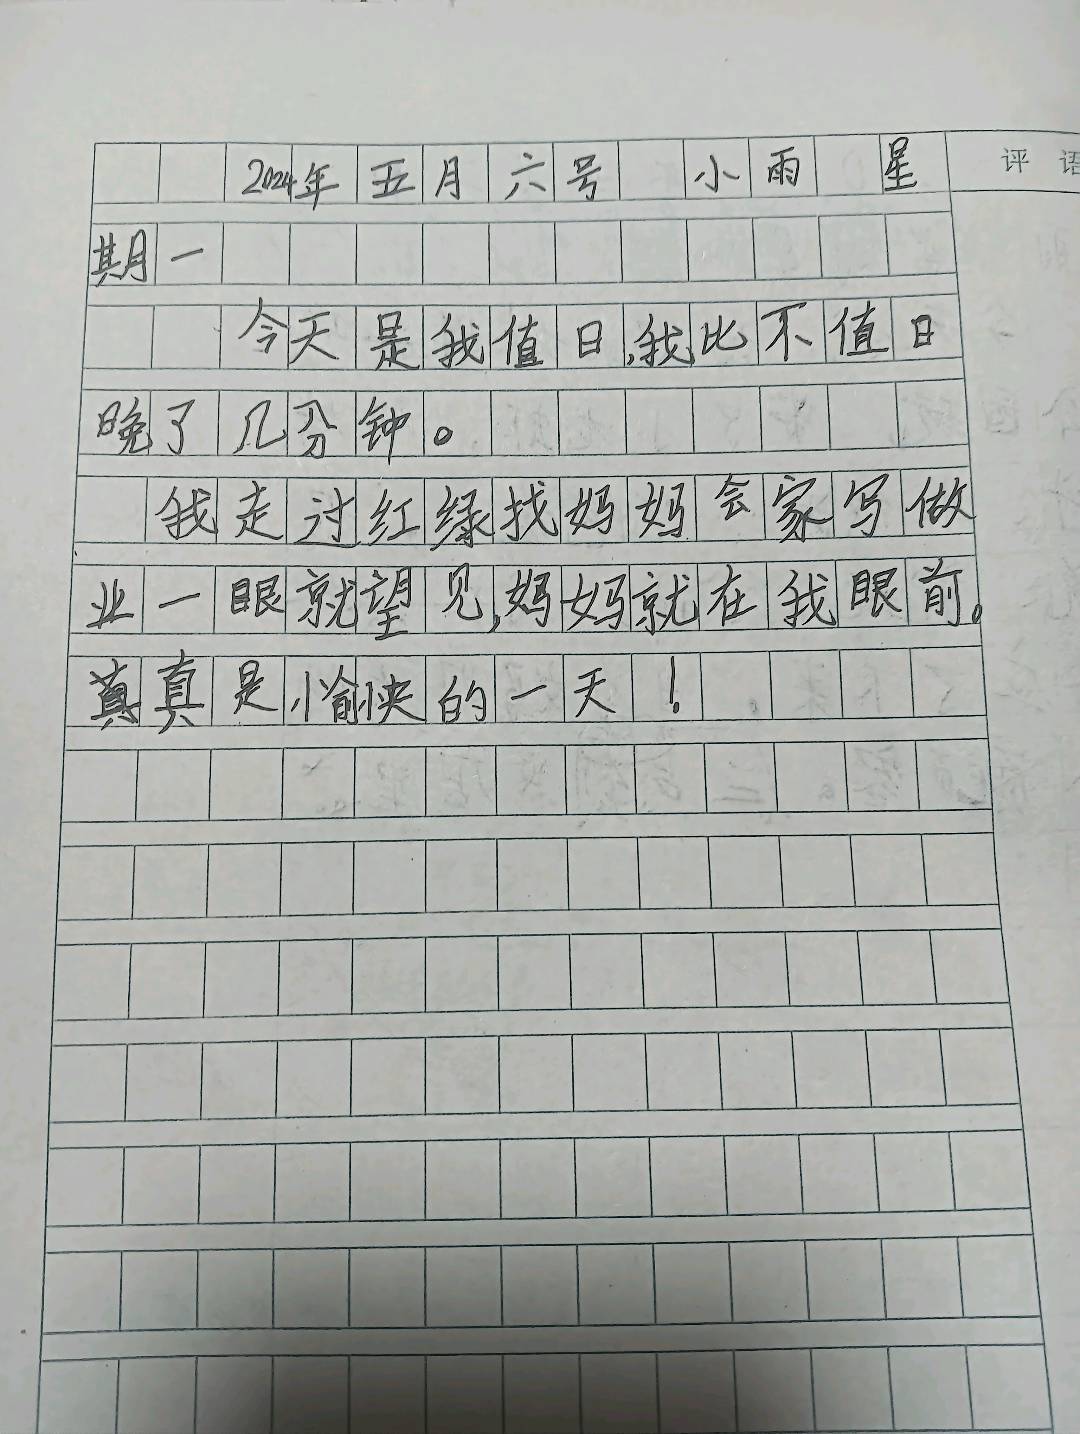 2024年五月六号 小雨 星
评语
期一
今天是我值日,我比不值日
晚了几分钟。
我走过红绿找妈妈会家写做
业一眼就望见,妈妈就在我眼前。
真真是愉快的一天!